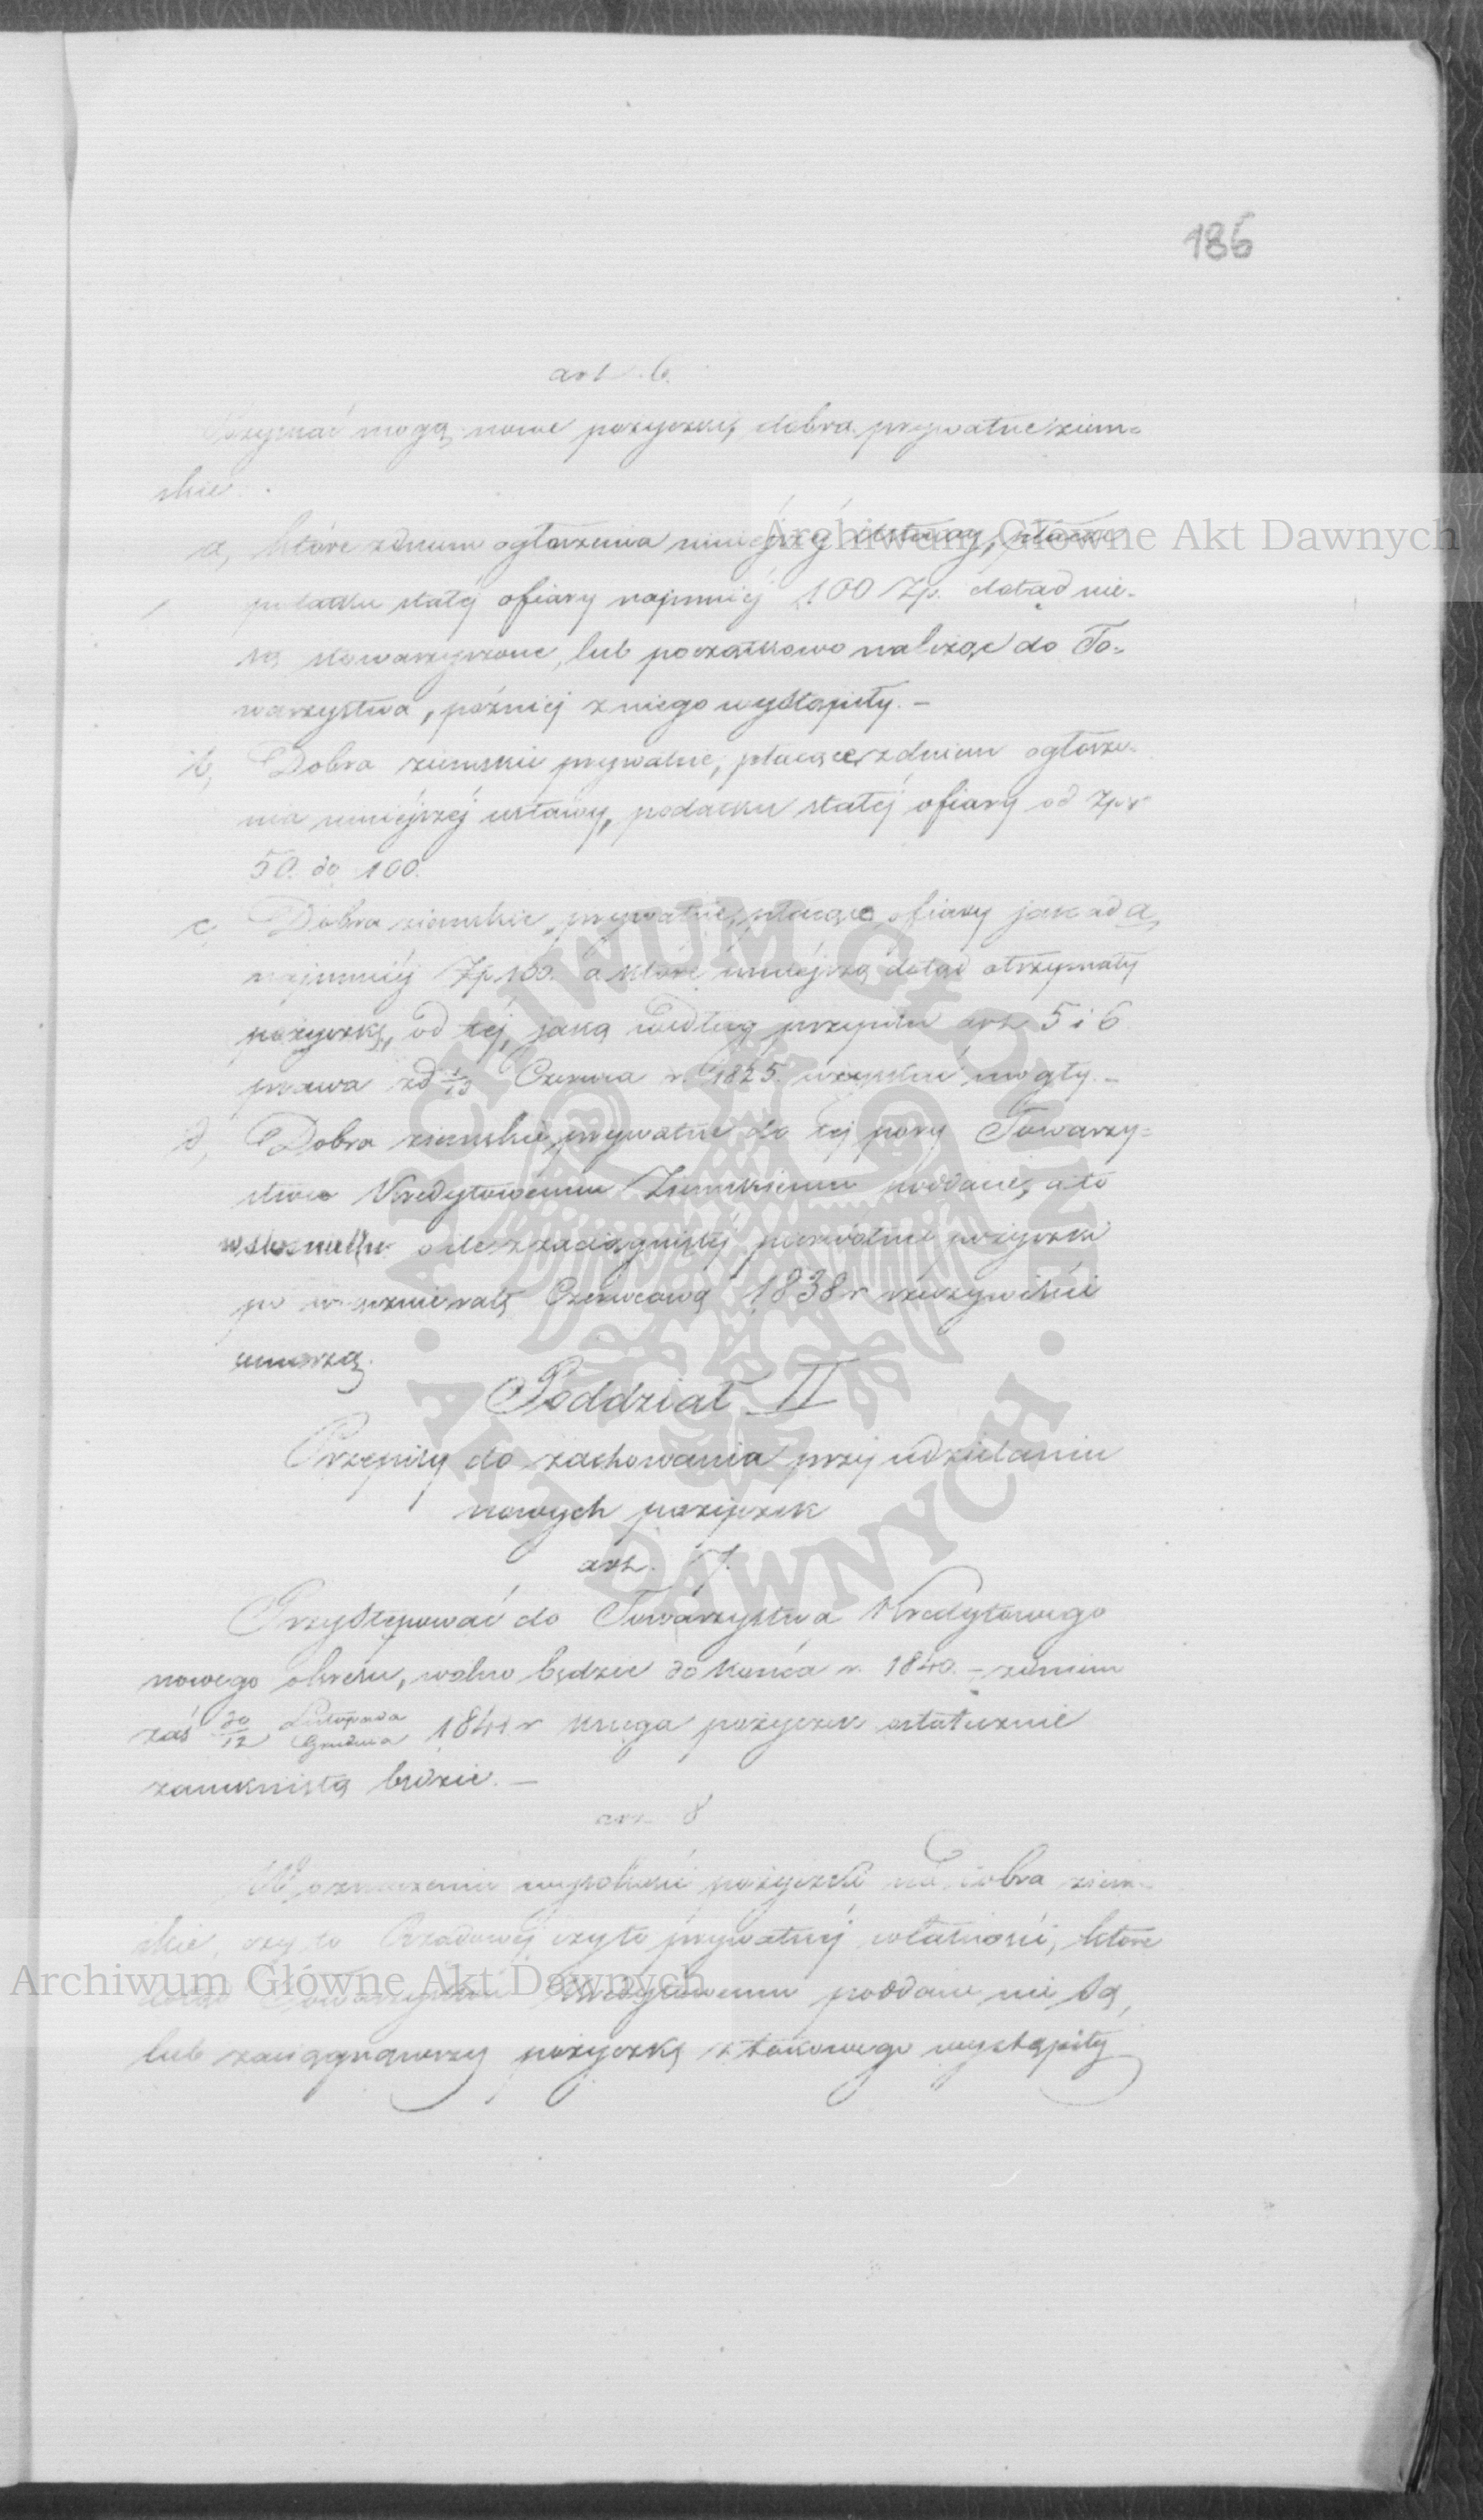 186
art. 6.
Uzyskać mogą nowe pożyczki, dobra prywatne ziem=
skie.
a, które z dniem ogłoszenia niniejszéj Ustawy, płacąc
podatku stałéj ofiary najmniéj 100 Zp. dotąd nie=
są stowarzyszone, lub początkowo należąc do To=
warzystwa, późniéj z niego wystąpiły. —
b, Dobra ziemskie prywatne, płacące z dniem ogłosze=
nia niniéjszéj ustawy, podatku stałéj ofiary od Zp
50. do 100.
c, Dobra ziemskie prywatne, płacące ofiary jak ad a,
najmniéj Zp 100. a które mniéjszą dotąd otrzymały
pożyczkę, od téj, jaką według przepisu art 5 i 6
prawa z d 1/13 Czerwca r. 1825. uzyskać mogły. —
d, Dobra ziemskie prywatne do téj pory Towarzy=
stwu Kredytowemu Ziemskiemu poddane, a to
w stosunku o ile z zaciągniętéj pierwotnie pożyczki
po włącznie ratę Czerwcową 1838 r rzeczywiście
umorzą.
Poddział II
Przepisy do zachowania przy udzielaniu
nowych pożyczek
art. 7.
Przystępować do Towarzystwa Kredytowego
nowego okresu, wolno będzie do końca r. 1840. — z dniem
zaś 30/12 Listopada/Grudnia 1841 r księga pożyczek ostatecznie
zamkniętą będzie. —
art. 8
W oznaczeniu wysokości pożyczki na dobra ziem=
skie, czy to Rządowéj czy to prywatnéj własności, które
dotąd Towarzystwu Kredytowemu poddane nie są,
lub zaciągnąwszy pożyczkę z takowego wystąpiły
Archiwum Główne Akt Dawnych
Archiwum Główne Akt Dawnych
ARCHIWUM GŁÓWNE AKT DAWNYCH